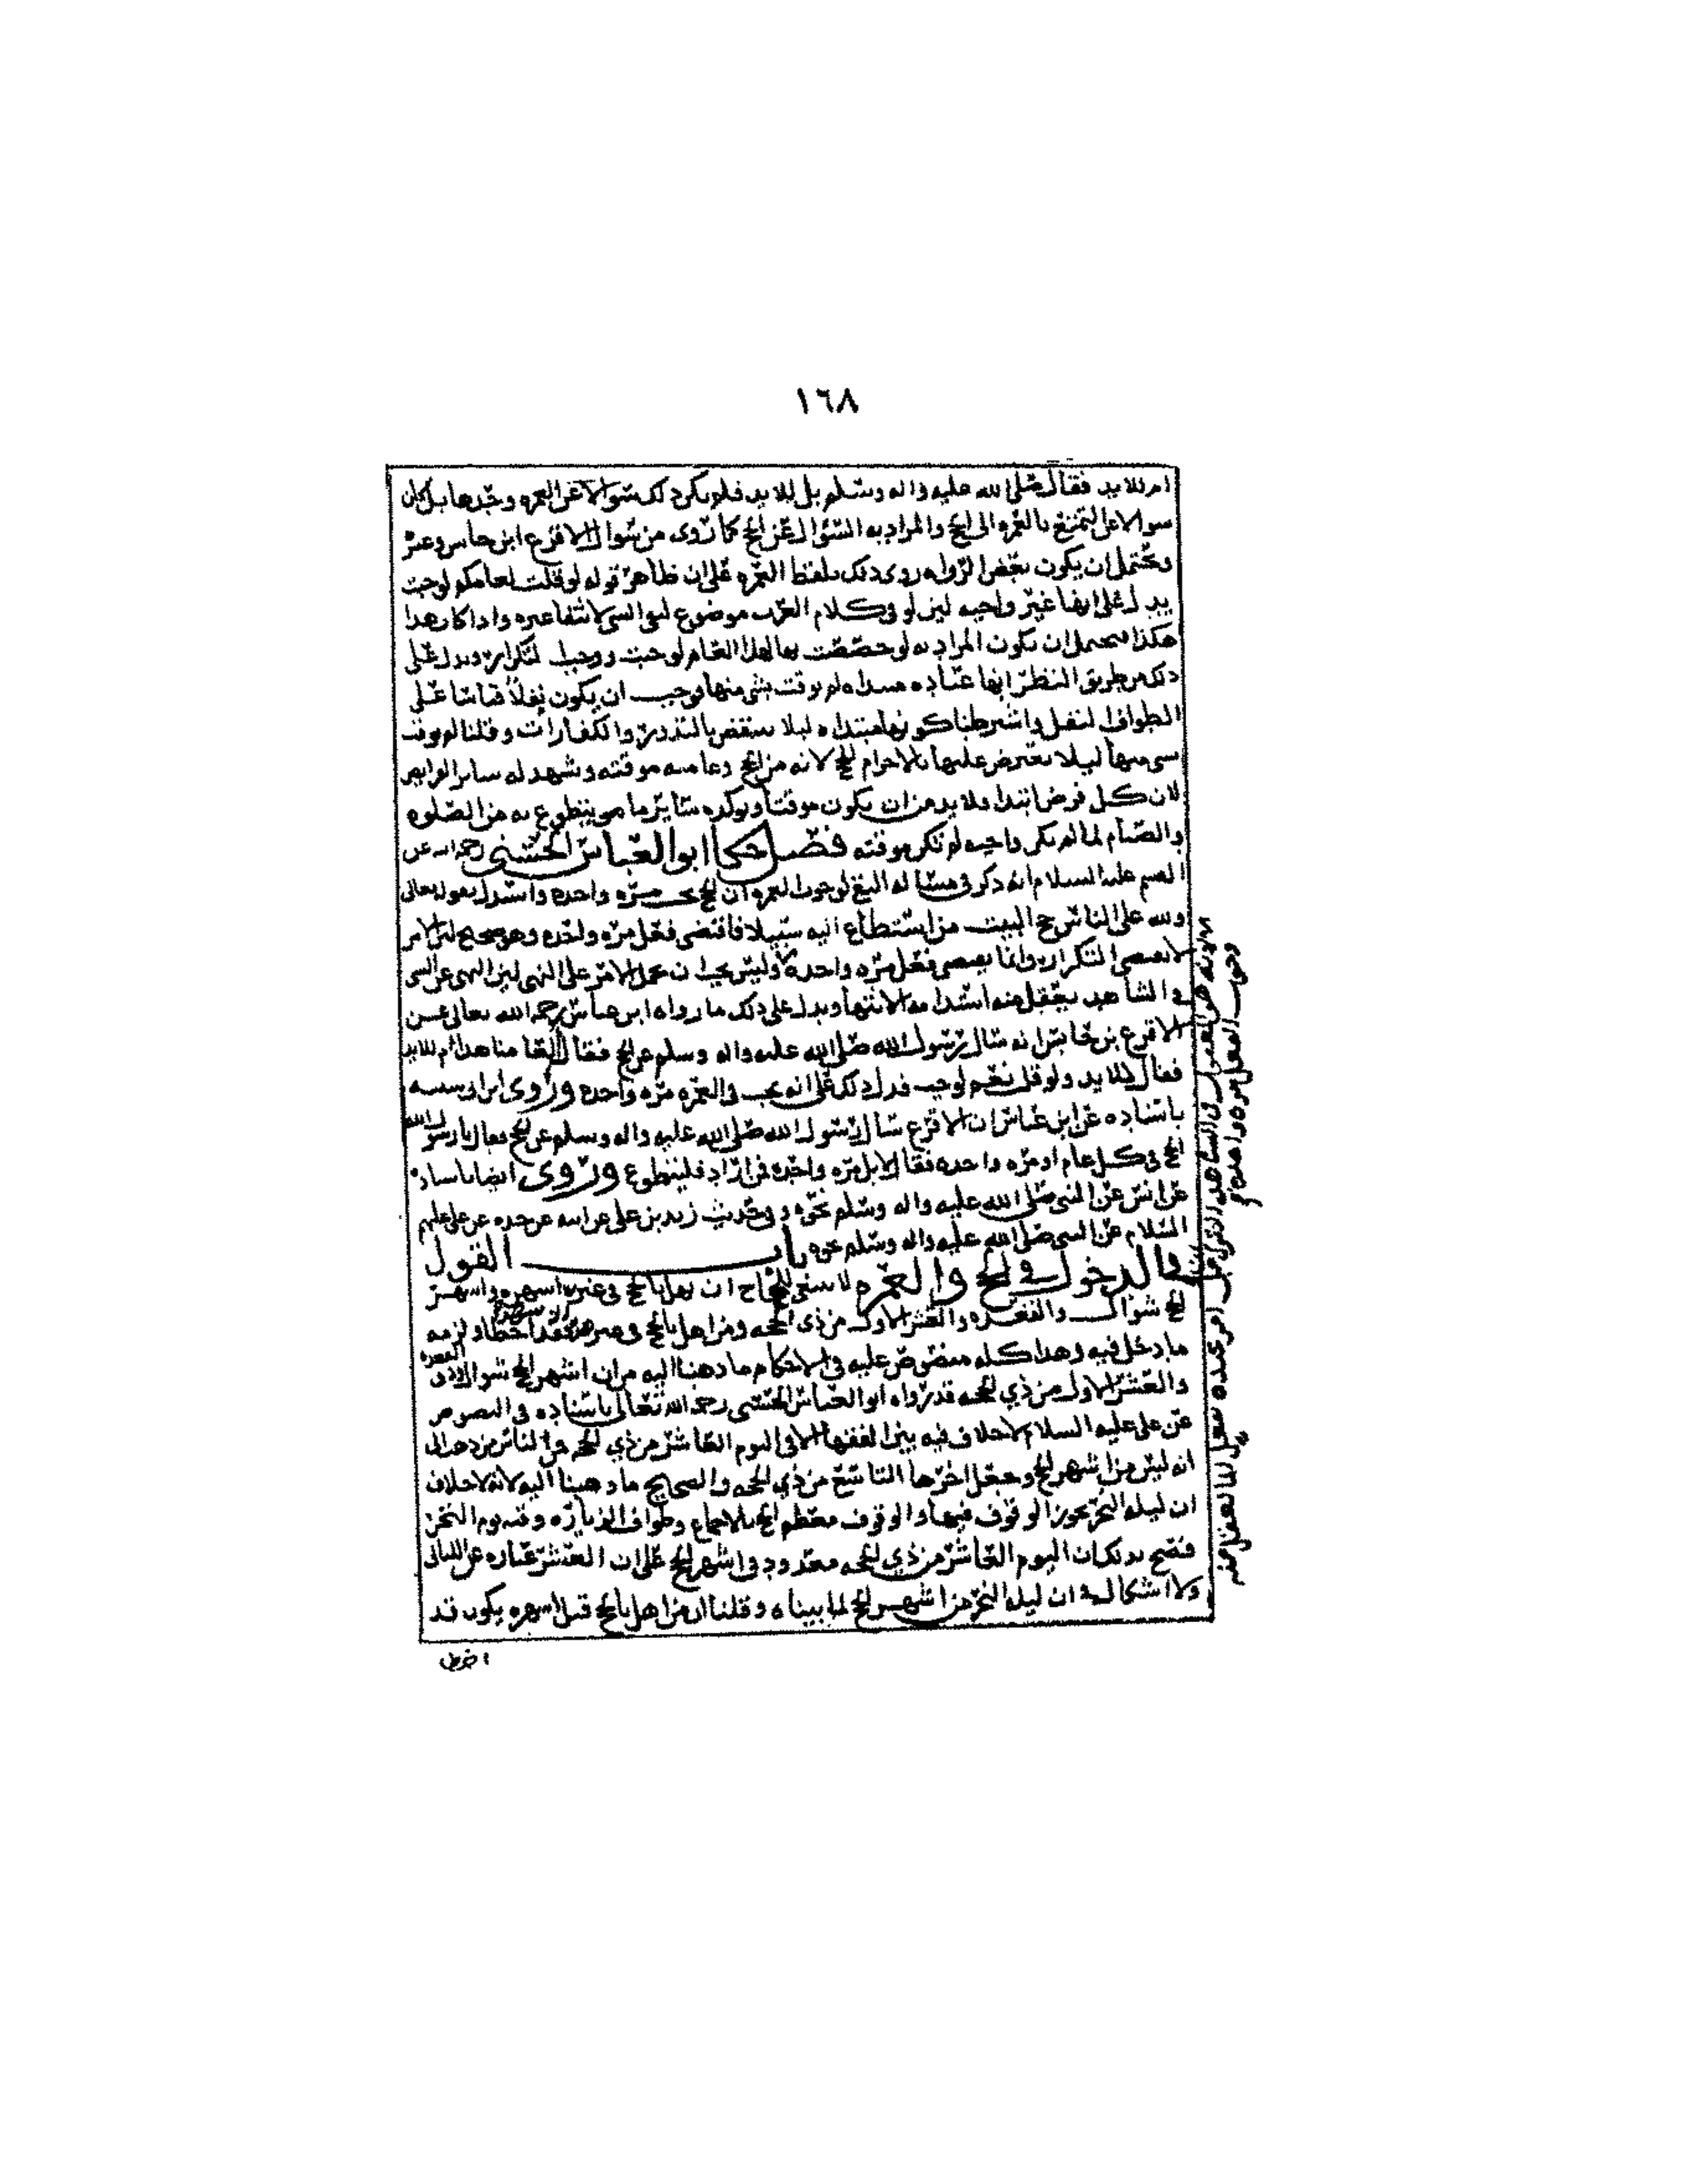 ١٦٨
ام للابد فقال صلى الله عليه واله وسلم بل للابد فلم يكن ذلك سوالا عن العمره وحدها بل كان
سوالا عن التمتع بالعمره الى الحج والمراد به السؤال عن الحج كما روى من سوال الاقرع ابن حابس وغير
ويحتمل ان يكون بعض الرواه روى ذلك بلفظ العمره على ان ظاهر قوله لو قلت لعامكم لوجبت
يدل على انها غير واجبه لان لو فى كلام العرب موضوع لنفى الشى لانتفا غيره واذا كان هذا
هكذا فيحتمل ان يكون المراد به لو خصصت بها لهذا العام لوجبت ووجب التكرار ويدل على
ذلك من طريق النظر انها عباده مبتداه لم توقت بشى منها فوجب ان يكون نفلا قياسا على
الطواف النفل واشترطنا كونها مبتداه ليلا ينتقض بالنذور والكفارات وقلنا لم توقت
بشى منها ليلا يعترض عليها بالاحرام للحج لانه من الحج وعامته موقته وشهد له ساير الفرايض
لان كل فرض ابتدا فلا بد من ان يكون موقتا ويوكده ساير ما هو يتطوع به من الصلوه
والصيام لما لم يكن واجبه لم تكن موقته فصل حكا ابو العباس الحسنى رحمه الله عن
القسم عليه السلام انه ذكر فى مساله النفى لوجوب العمره ان الحج يجب مره واحده واستدل بقوله تعالى
ولله على الناس حج البيت من استطاع اليه سبيلا فاقتضى فعل مره واحده وهو صحيح لان الامر
لا يقتضى التكرار وانما يقتضى فعل مره واحده وليس يجب ان يحمل الامر على النهى لان النهى عن الشى
فى الشاهد يعقل منه استدامه الانتها ويدل على ذلك ما رواه ابن عباس رحمه الله تعالى عن
الاقرع بن حابس انه سال رسول الله صلى الله عليه واله وسلم عن الحج فقال العامنا هذا ام للابد
فقال للابد ولو قلت نعم لوجب فدل ذلك على انه يجب فى العمره مره واحده وروى ابن ابى شيبه
باسناده عن ابن عباس ان الاقرع سال رسول الله صلى الله عليه واله وسلم عن الحج فقال يا رسول الله
الحج فى كل عام او مره واحده فقال لا بل مره واحده فمن اراد فليتطوع وروى ايضا باسناده
عن انس عن النبى صلى الله عليه واله وسلم نحوه وفى حديث زيد بن على عن ابيه عن جده عن على عليهم
السلام عن النبى صلى الله عليه واله وسلم نحوه باب القول
فى الدخول فى الحج والعمره لا ينبغى للحاج ان يهل بالحج فى غير اشهره واشهر
الحج شوال والقعده والعشر الاول من ذى الحجه ومن اهل بالحج فى غير هذه فقد اخطا ولزمه
ما دخل فيه وهذا كله منصوص عليه فى الاحكام ما ذهبنا اليه من ان اشهر الحج شوال وذى القعده
والعشر الاول من ذي الحجه قد رواه ابو العباس الحسنى رحمه الله تعالى باسناده فى النصوص
عن على عليه السلام لا خلاف فيه بين الفقها الا فى اليوم العاشر من ذي الحجه فمن الناس من ذهب الى
انه ليس من اشهر الحج وجعل اخرها التاسع من ذي الحجه والصحيح ما ذهبنا اليه لانه لا خلاف
ان ليله النحر يجوز الوقوف فيها والوقوف معظم الحج بالاجماع وطواف الزياره وقته يوم النحر
فصح بذلك ان اليوم العاشر من ذي الحجه معدود فى اشهر الحج على ان العشر عباره عن الليالى
ولا اشكال فى ان ليله النحر من اشهر الحج لما بيناه وقلنا ان من اهل بالحج قبل اشهره يكون قد